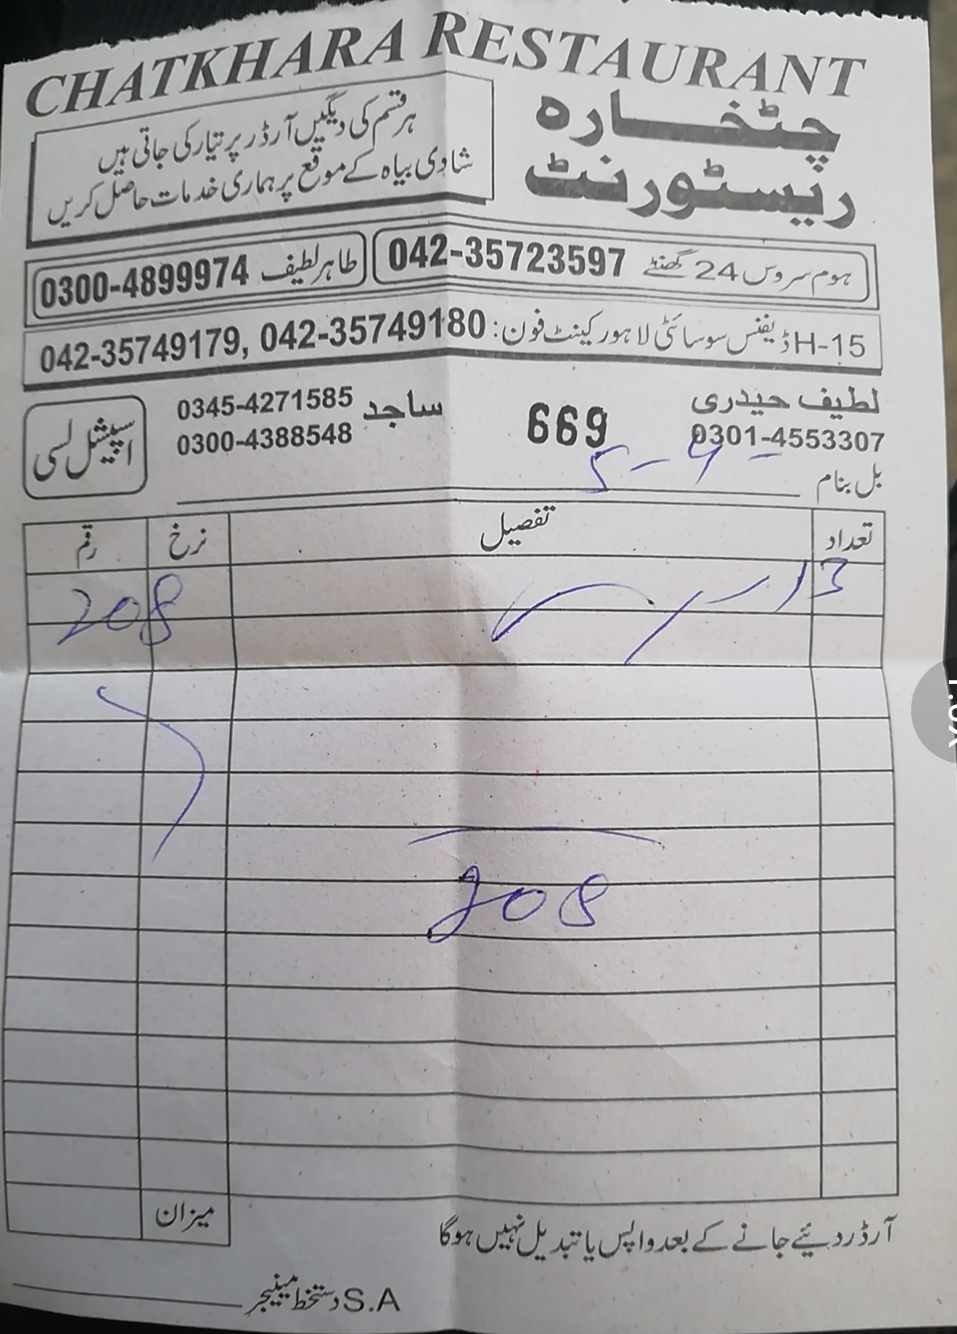 CHATKHARA RESTAURANT
چٹخارہ
ریسٹورنٹ
ہر قسم کی دیگیں آرڈر پر تیار کی جاتی ہیں
شادی بیاہ کے موقع پر ہماری خدمات حاصل کریں
ہوم سروس 24 گھنٹے 042-35723597
طاہر لطیف 0300-4899974
H-15 ڈیفنس سوسائٹی لاہور کینٹ فون: 042-35749179, 042-35749180
لطیف حیدری
0301-4553307
669
ساجد 0345-4271585
0300-4388548
اسپیشل لسی
بل بنام
5-9-
تعداد تفصیل نرخ رقم
13
208
208
میزان
آرڈر دیئے جانے کے بعد واپس یا تبدیل نہیں ہوگا
S.A دستخط مینیجر